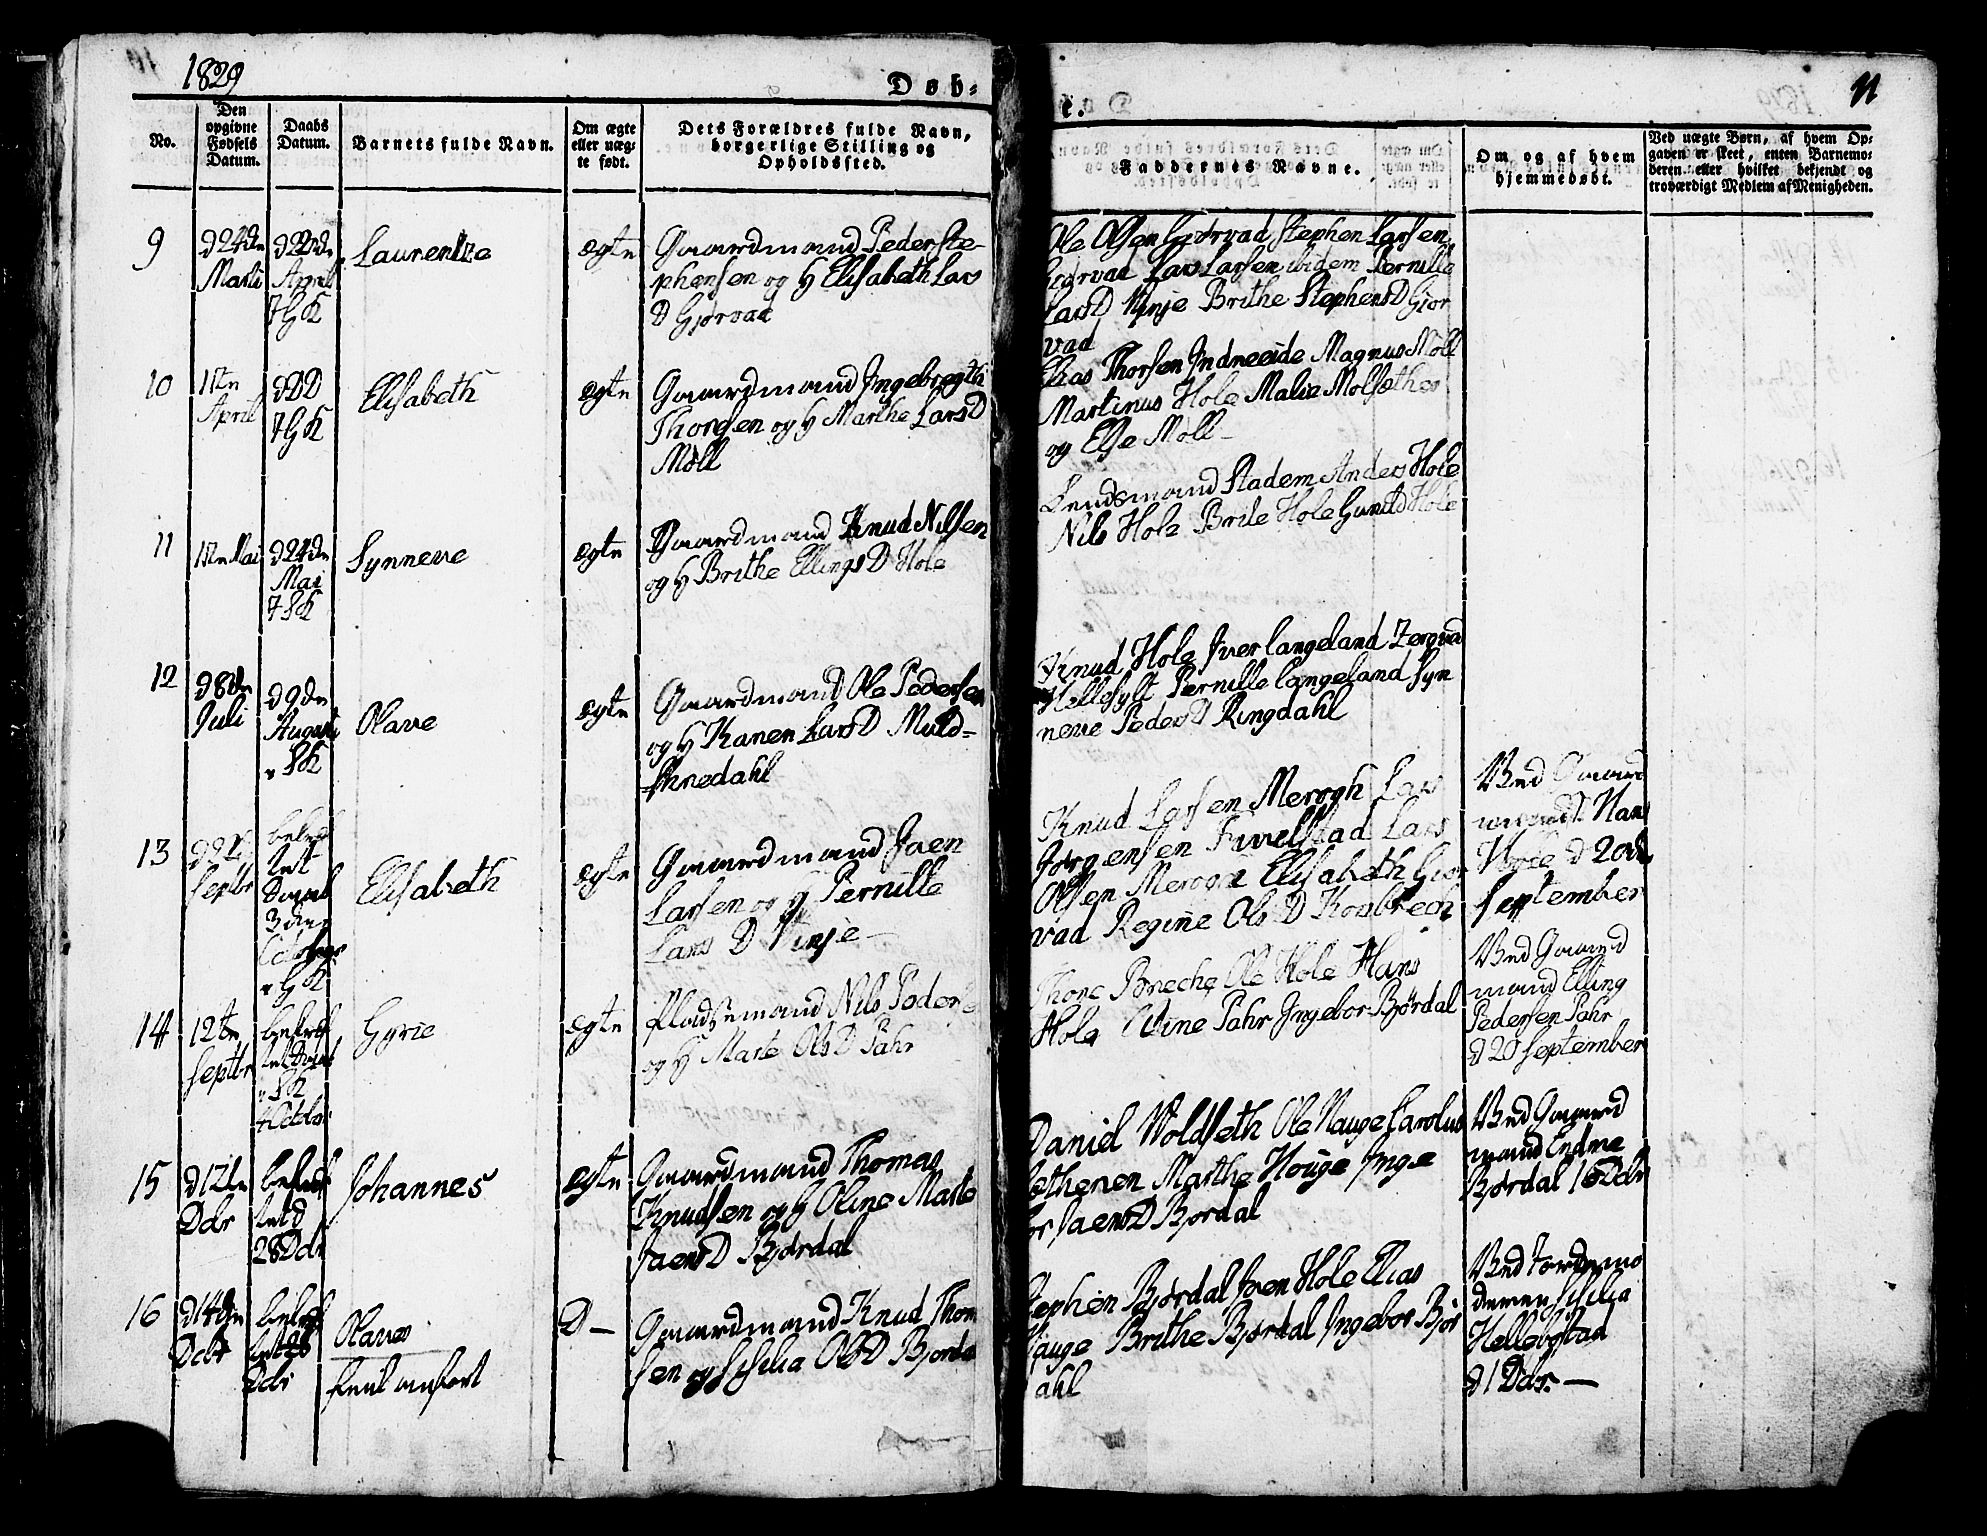 1829
Døb-
e.
11
No.
Den
opgivne
Fødsels
Datum.
Daabs
Datum.
Barnets fulde Navn.
Om ægte
eller uæg-
te født.
Dets Forældres fulde Navn,
borgerlige Stilling og
Opholdssted.
Faddernes Navne.
Om og af hvem
hjemmedøbt.
Ved uægte Børn, af hvem Op-
gaven er skeet, enten Barnemo-
deren eller hvilket bekjendt og
troværdigt Medlem af Menigheden.
9
d 24de
Marti
April
GK
Laurentze
ægte
Gaardmand Peder Ste-
phensen og H Elisabeth Lars
D Gjørvad
Ole Olsen Gjørvad Stephen Larsen
Gjørvad Lars Larsen ibidem Pernille
LarsD Vinje Brithe StephensD Gjør
vad
10
April
dDD
GK
Elisabeth
ægte
Gaardmand Ingebregth
Thorsen og H Marthe LarsD
Møll
Elias Thorsen Indreeide Magnus Møll
Martinus Hole Malie Molsether
og Else Møll
11
Mai
d 24de
Mai
SK
Synneve
ægte
Gaardmand Knud Nilsen
og H Brithe EllingsD Hole
Lendsmand Stadem Anders Hole
Nils Hole Brite Hole Hole
12
d 8de
Juli
d 9de
August
SK
Olave
ægte
Gaardmand Ole Pedersen
og H Karen LarsD Muld-
Knud Hole Iver Langeland
Hellesylt Pernille Langeland Syn
neve PedersD Ringdahl
13
Septbr
bekref
tet
Daab
GK
Elisabeth
ægte
Gaardmand Jaen
Larsen og H Pernille
Lars D Vinje
Knud Larsen Merogh Lars
Jørgensen Lars
Olsen Merogh Elisabeth Gjør
vad Regine OlsD
Ved Gaard
mand Hans
Hole d 20de
September
14
12te
Septbr
bekref
tet Daab
SK
Gyrie
ægte
Pladsemand Nils Peders
og H Marte OlsD Pahr
Thore Ole Hole Hans
Hole Pahr Ingebor Bjørdal
Ved Gaard
mand Elling
Pedersen Pahr
d 20 September
15
d 12te
Dcbr
bekref
tet d
28 Dcbr
Johannes
ægte
Gaardmand Thomas
Knudsen og H Oline Marte
JaensD Bjørdal
Daniel Woldseth Ole Hauge Carolus
Marthe Houge Inge
bor JaensD Bjørdal
Ved Gaard
mand Endre
Bjørdal 16 Dcbr
16
d 14de
Dcbr
bekref
Dcbr
Olaves
feil anført
D —
Gaardmand Knud Thom
sen og Sisilia OlsD Bjørda
Stephen Bjørdal Hole Elias
Hauge Brithe Bjørdal Ingebor Bjør
dahl
Ved Jordemo
deren Sisilia
Hellebostad
d 1 Dcbr. —